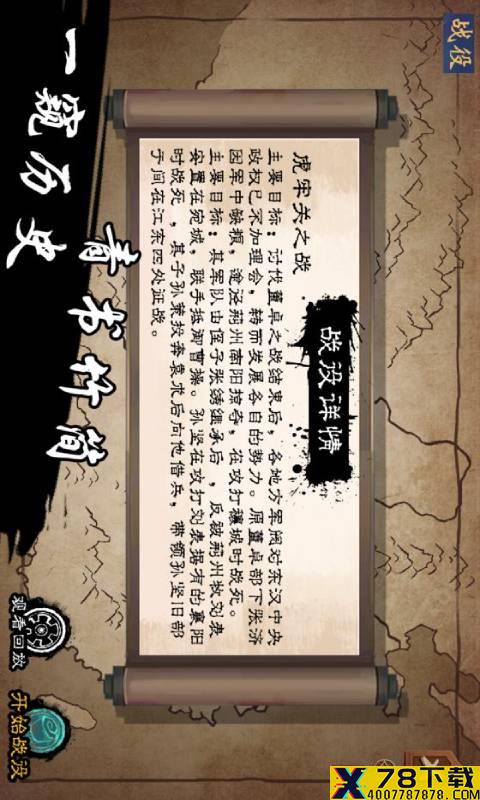 战役
战役详情
虎牢关之战
主要目标：讨伐董卓之战结束后，各地方军阀对东汉中央
政权已不加理会，转而发展各自的势力。原董卓部下张济
因军中缺粮，途径荆州南阳掠夺，在攻打穰城时战死。
主要目标：其军队由侄子张绣继承后，反被荆州牧刘表
安置在宛城，联手抵御曹操。孙坚在攻打刘表据有的襄阳
时战死，其子孙策投奔袁术后向他借兵，带领孙坚旧部
于间在江东四处征战。
一窥历史
青书竹简
观看回放
开始战役
78下载
4007787878.COM